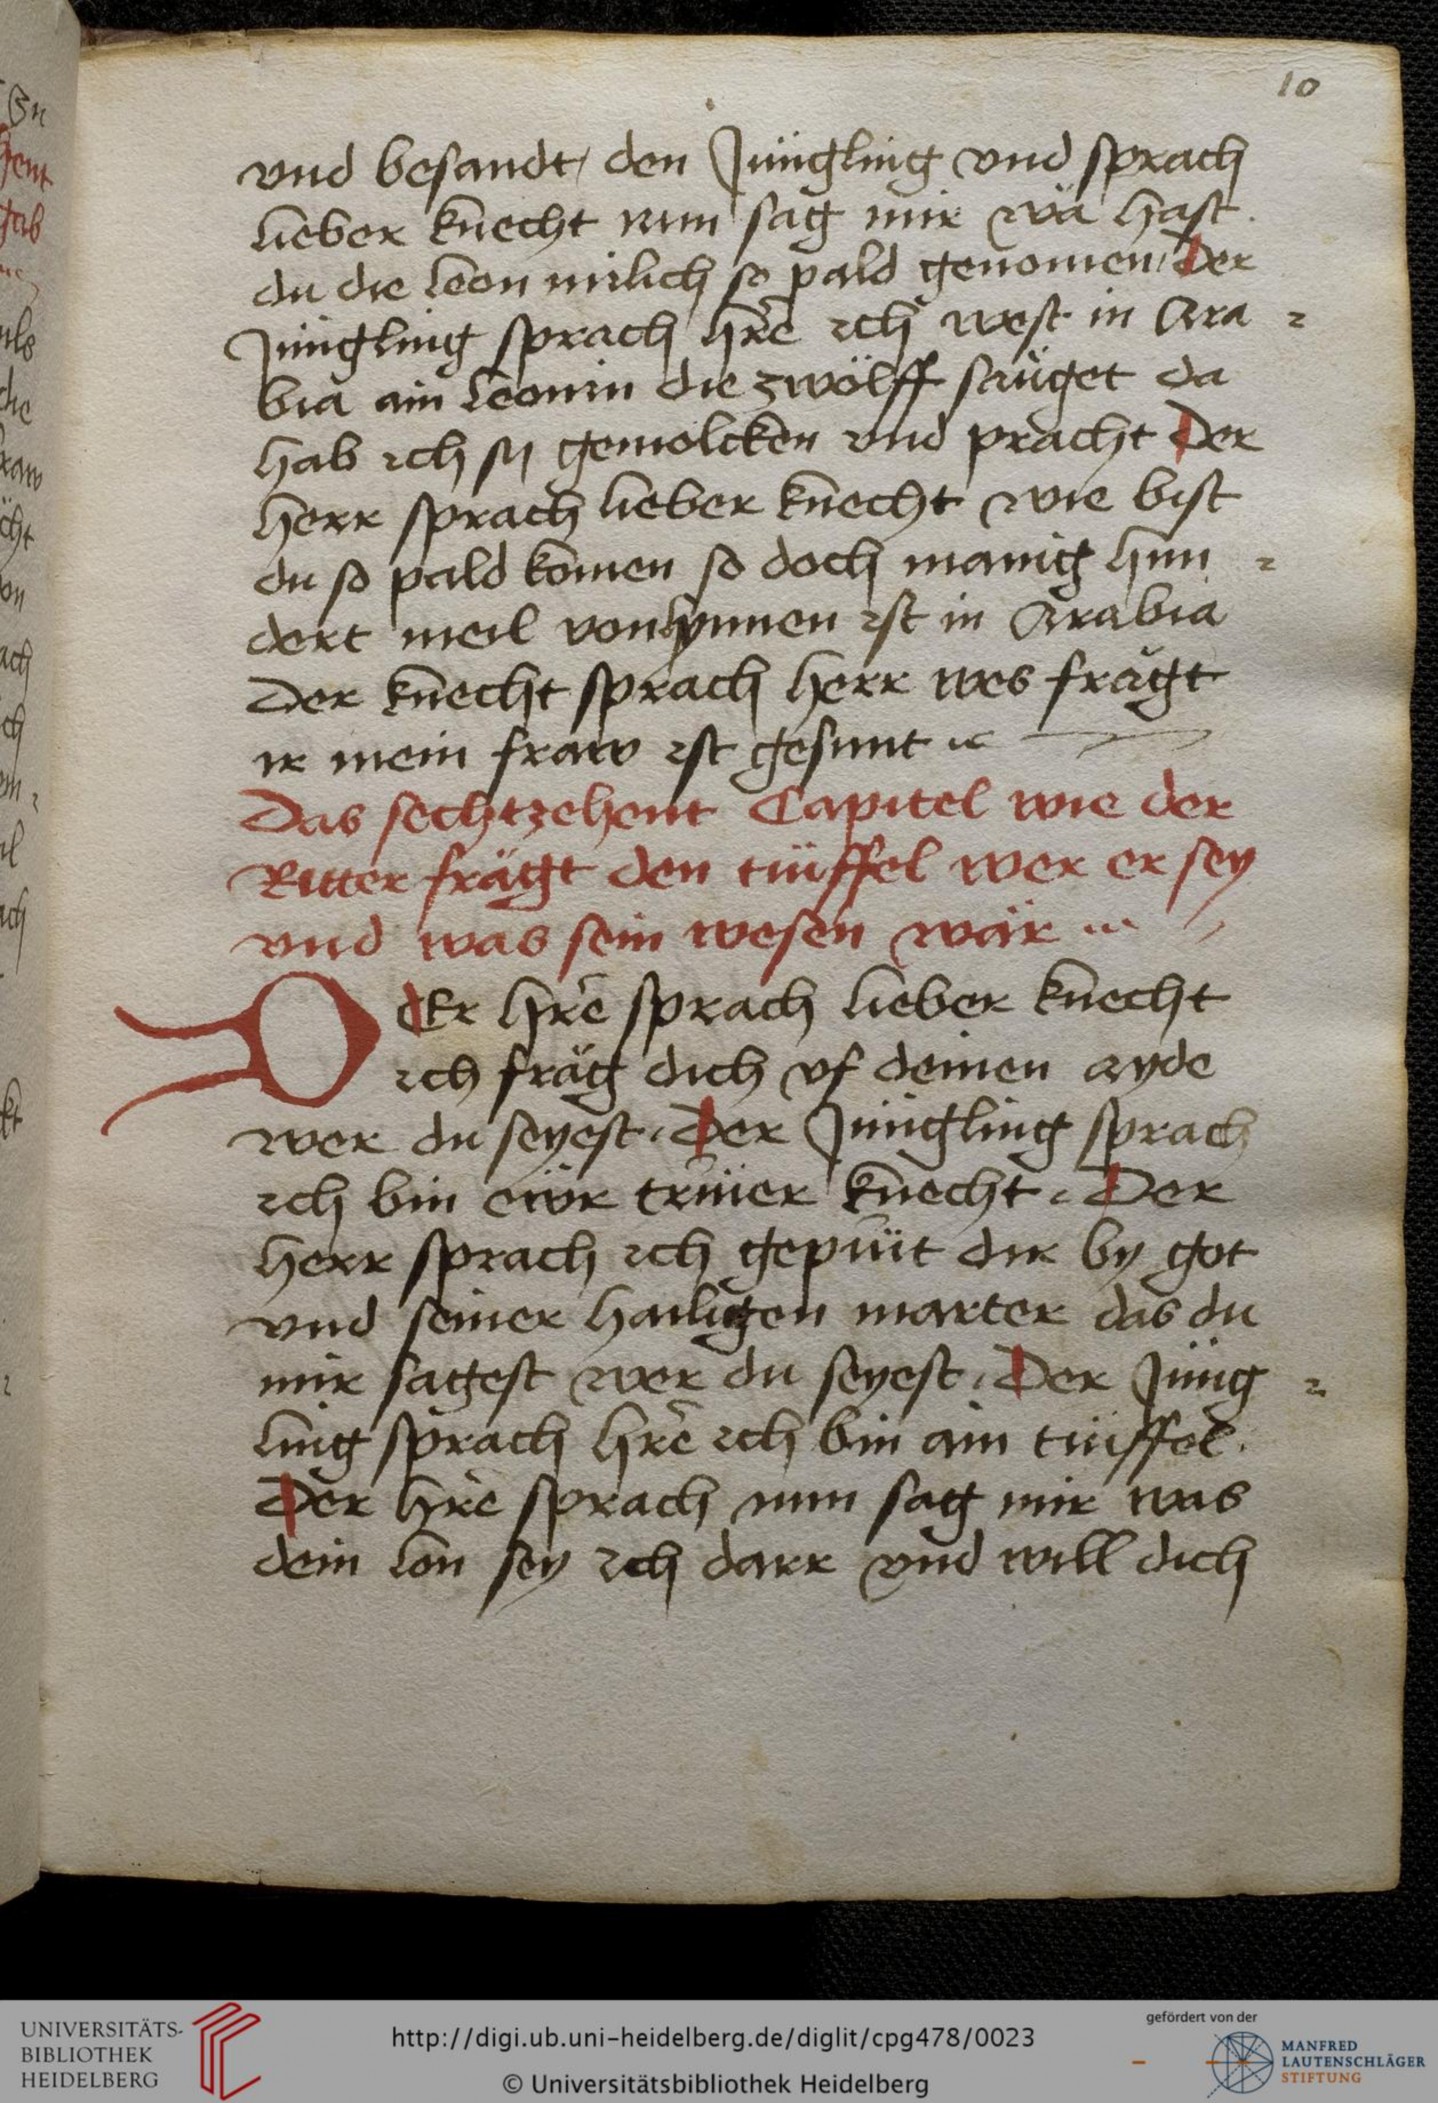 10
vnd besandt / den Jüngling vnd sprach
lieber knecht nun sag mir wä hast
du die leon milich so pald genomen / Der
Jüngling sprach hre ich west in Ara =
bia ain Leonin die zwölff säuget da
hab ich sy gemolcken vnd pracht Der
herr sprach lieber knecht wie bist
du so pald komen so doch manig hun =
dert meil von hynnen ist in Arabia
Der knecht sprach herr wes frägt
ir mein fraw ist gesunt
Das sechtzehent Capitel wie der
Ritter frägt den tüffel wer er sey
vnd was sein wesen wär
DEr hre sprach lieber knecht
ich fräg dich vf deinen ayde
wer du seyest. Der Jüngling sprach
ich bin ewr trüier knecht. Der
herr sprach ich gepüit dir by got
vnd seiner hailigen marter das du
mir sagest wer du seyest. Der Jüng =
ling sprach hre ich bin ain tüffel.
Der hre sprach nun sag mir was
dein lon sey ich darr vnd will dich
UNIVERSITÄTS-
BIBLIOTHEK
HEIDELBERG
http://digi.ub.uni-heidelberg.de/diglit/cpg478/0023
© Universitätsbibliothek Heidelberg
gefördert von der
MANFRED
LAUTENSCHLÄGER
STIFTUNG